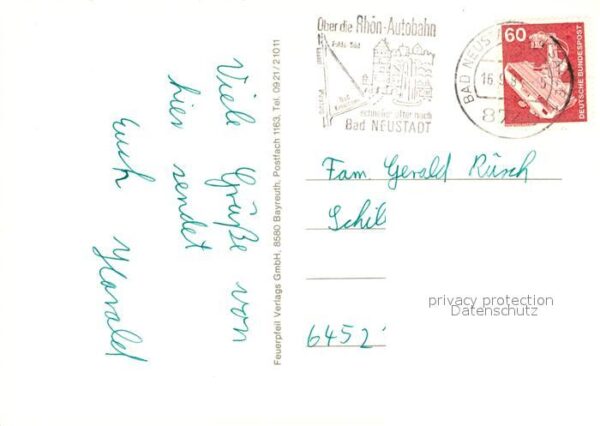 Viele Grüße von
hier sendet
Euch Harald
Feuerpfeil Verlags GmbH, 8580 Bayreuth, Postfach 1163, Tel. 0921/21011
Über die Rhön-Autobahn
schneller
nach
Bad NEUSTADT
BAD NEUS
16.9.8
87
60
DEUTSCHE BUNDESPOST
Fam. Gerald Rüsch
Schil
6452
privacy protection
Datenschutz